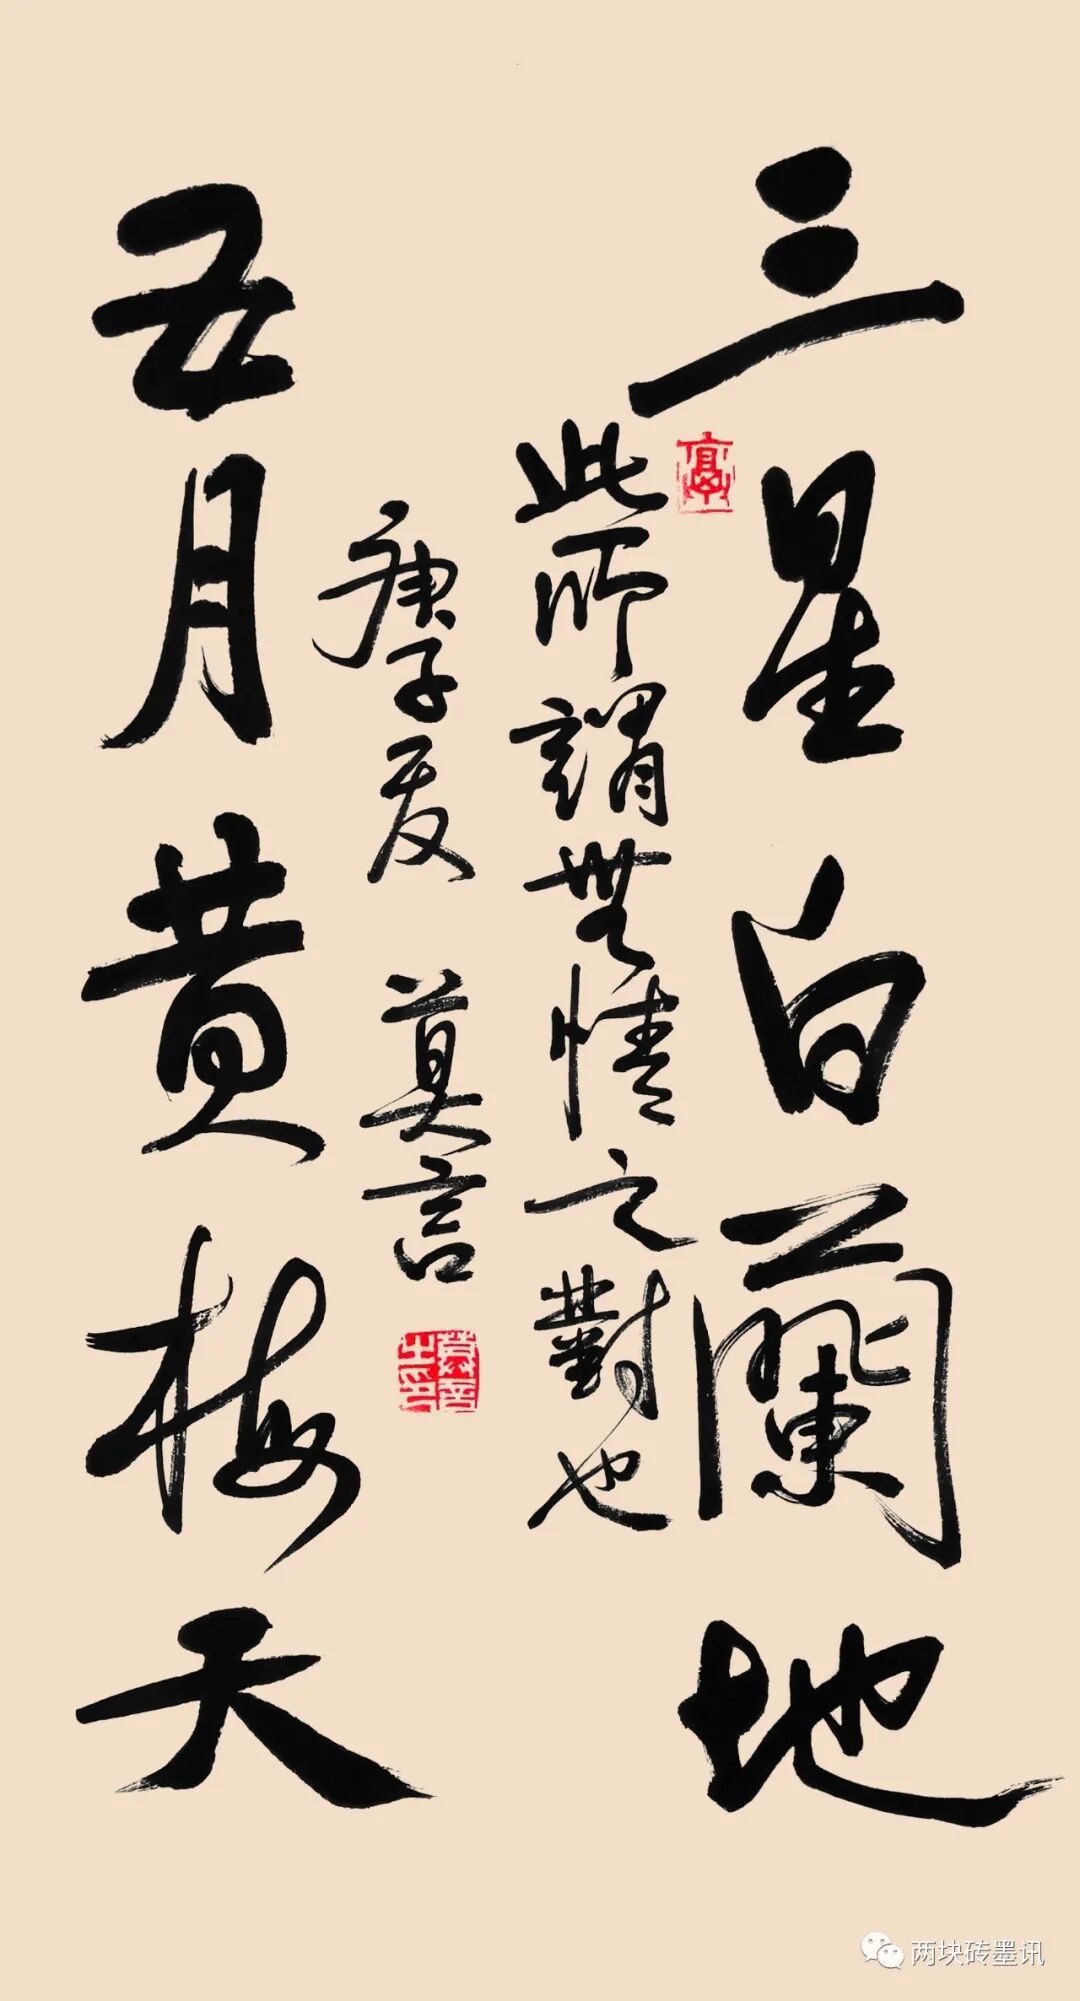 三星白蘭地
此所謂無情之對也
庚子夏 莫言
五月黄梅天
两块砖墨讯